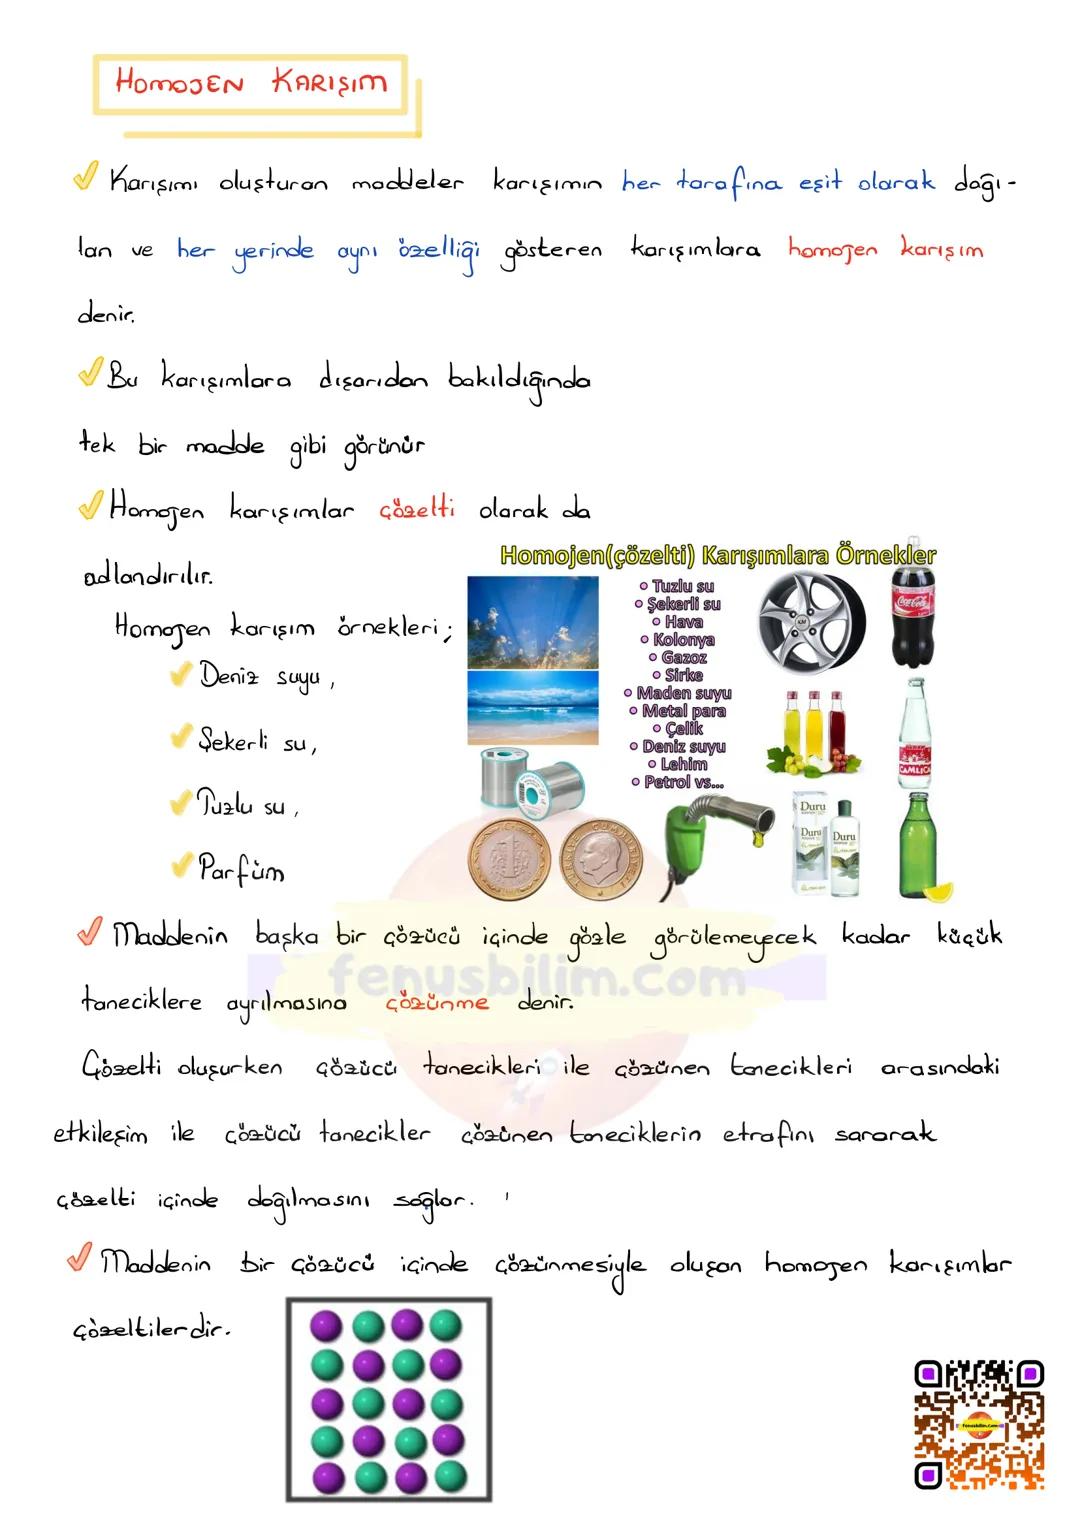 HOMOJEN KARIŞIM
Karışımı oluşturan maddeler karışımın her tarafına eşit olarak dağı-
lan ve her yerinde aynı özelliği gösteren karışımlara homojen karışım
denir.
Bu karışımlara dışarıdan bakıldığında
tek bir madde gibi görünür
Homojen karışımlar çözelti olarak da
adlandırılır.
Homojen karışım örnekleri;
Deniz suyu,
Şekerli su,
Tuzlu su,
Parfüm
Homojen(çözelti) Karışımlara Örnekler
Tuzlu su
Şekerli su
Hava
Kolonya
Gazoz
Sirke
Maden suyu
Metal para
Çelik
Deniz suyu
Lehim
Petrol vs...
Coca-Cola
ÇAMLICA
Duru
Duru
Duru
TÜRKİYE CUMHURİYETİ
Maddenin başka bir çözücü içinde gözle görülemeyecek kadar küçük
fenusbilim.com
taneciklere ayrılmasına çözünme denir.
Çözelti oluşurken çözücü tanecikleri ile çözünen tanecikleri arasındaki
etkileşim ile çözücü tanecikler çözünen taneciklerin etrafını sararak
çözelti içinde dağılmasını sağlar.
Maddenin bir çözücü içinde çözünmesiyle oluşan homojen karışımlar
çözeltilerdir.
fenusbilim.com